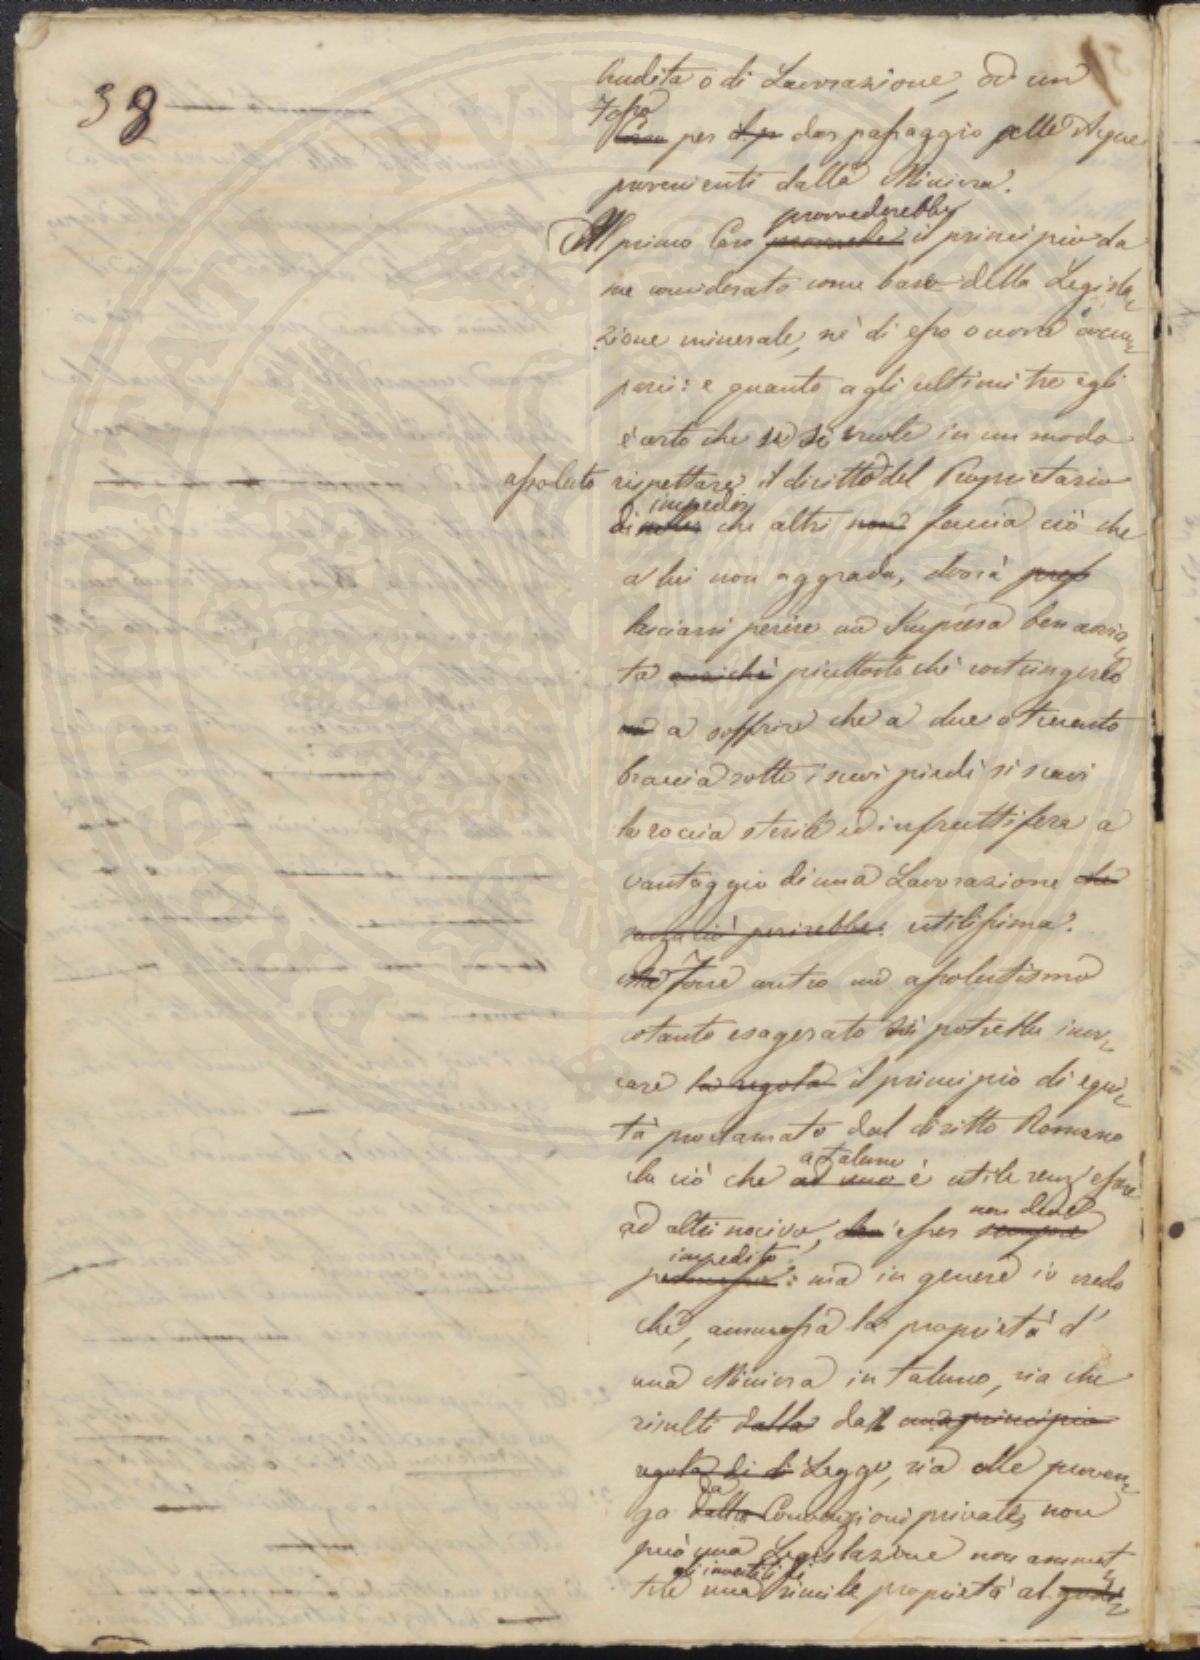 38
Audita o di Lavorazione, od un
Fosso
per il p dar passaggio delle Acque
provenienti dalla Miniera.
provvederebbe
Al primo Caso il principio da
me considerato come base della Legisla=
zione minerale, nè di esso occorre occu=
parci: e quanto agli ultimi tre egli
è certo che se si vuole in un modo
assoluto rispettare il diritto del Proprietario
impedir
di che altri non faccia ciò che
a lui non aggrada, dovrà
lasciarsi perire un Impresa ben avvia=
ta anzichè piuttosto chè costringerlo
a soffrire che a due o trecento
braccia sotto i suoi piedi si scavi
la roccia sterile ed infruttifera a
vantaggio di una Lavorazione che
senza ciò perirebbe: utilissima.
Ma Forse contro un assolutismo
cotanto esagerato si potrebbe invo=
care la regola il principio di equi=
tà proclamato dal diritto Romano
a taluno
che ciò che ad uno è utile senz'essere
non deve
ad altri nocivo, esser sempre
impedito
permesso: ma in genere io credo
che, ammessa la proprietà d'
una Miniera in taluno, sia che
risulti dalla dal una principio
regola di di Legge, sia che proven=
da
ga dalla Convenzioni private, non
può una Legislazione non ammet=
gli investiti di
tere una simile proprietà al